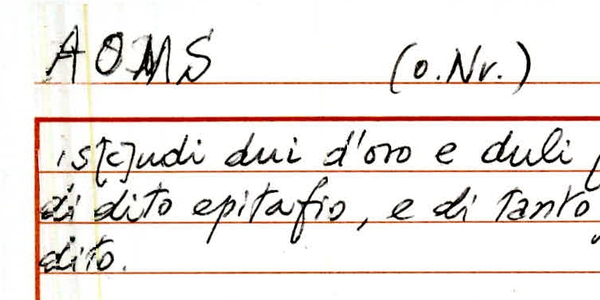 AOMS (o.Nr.)
, s[c]udi dui d'oro e duli
di dito epitafio, e di tanto
dito.